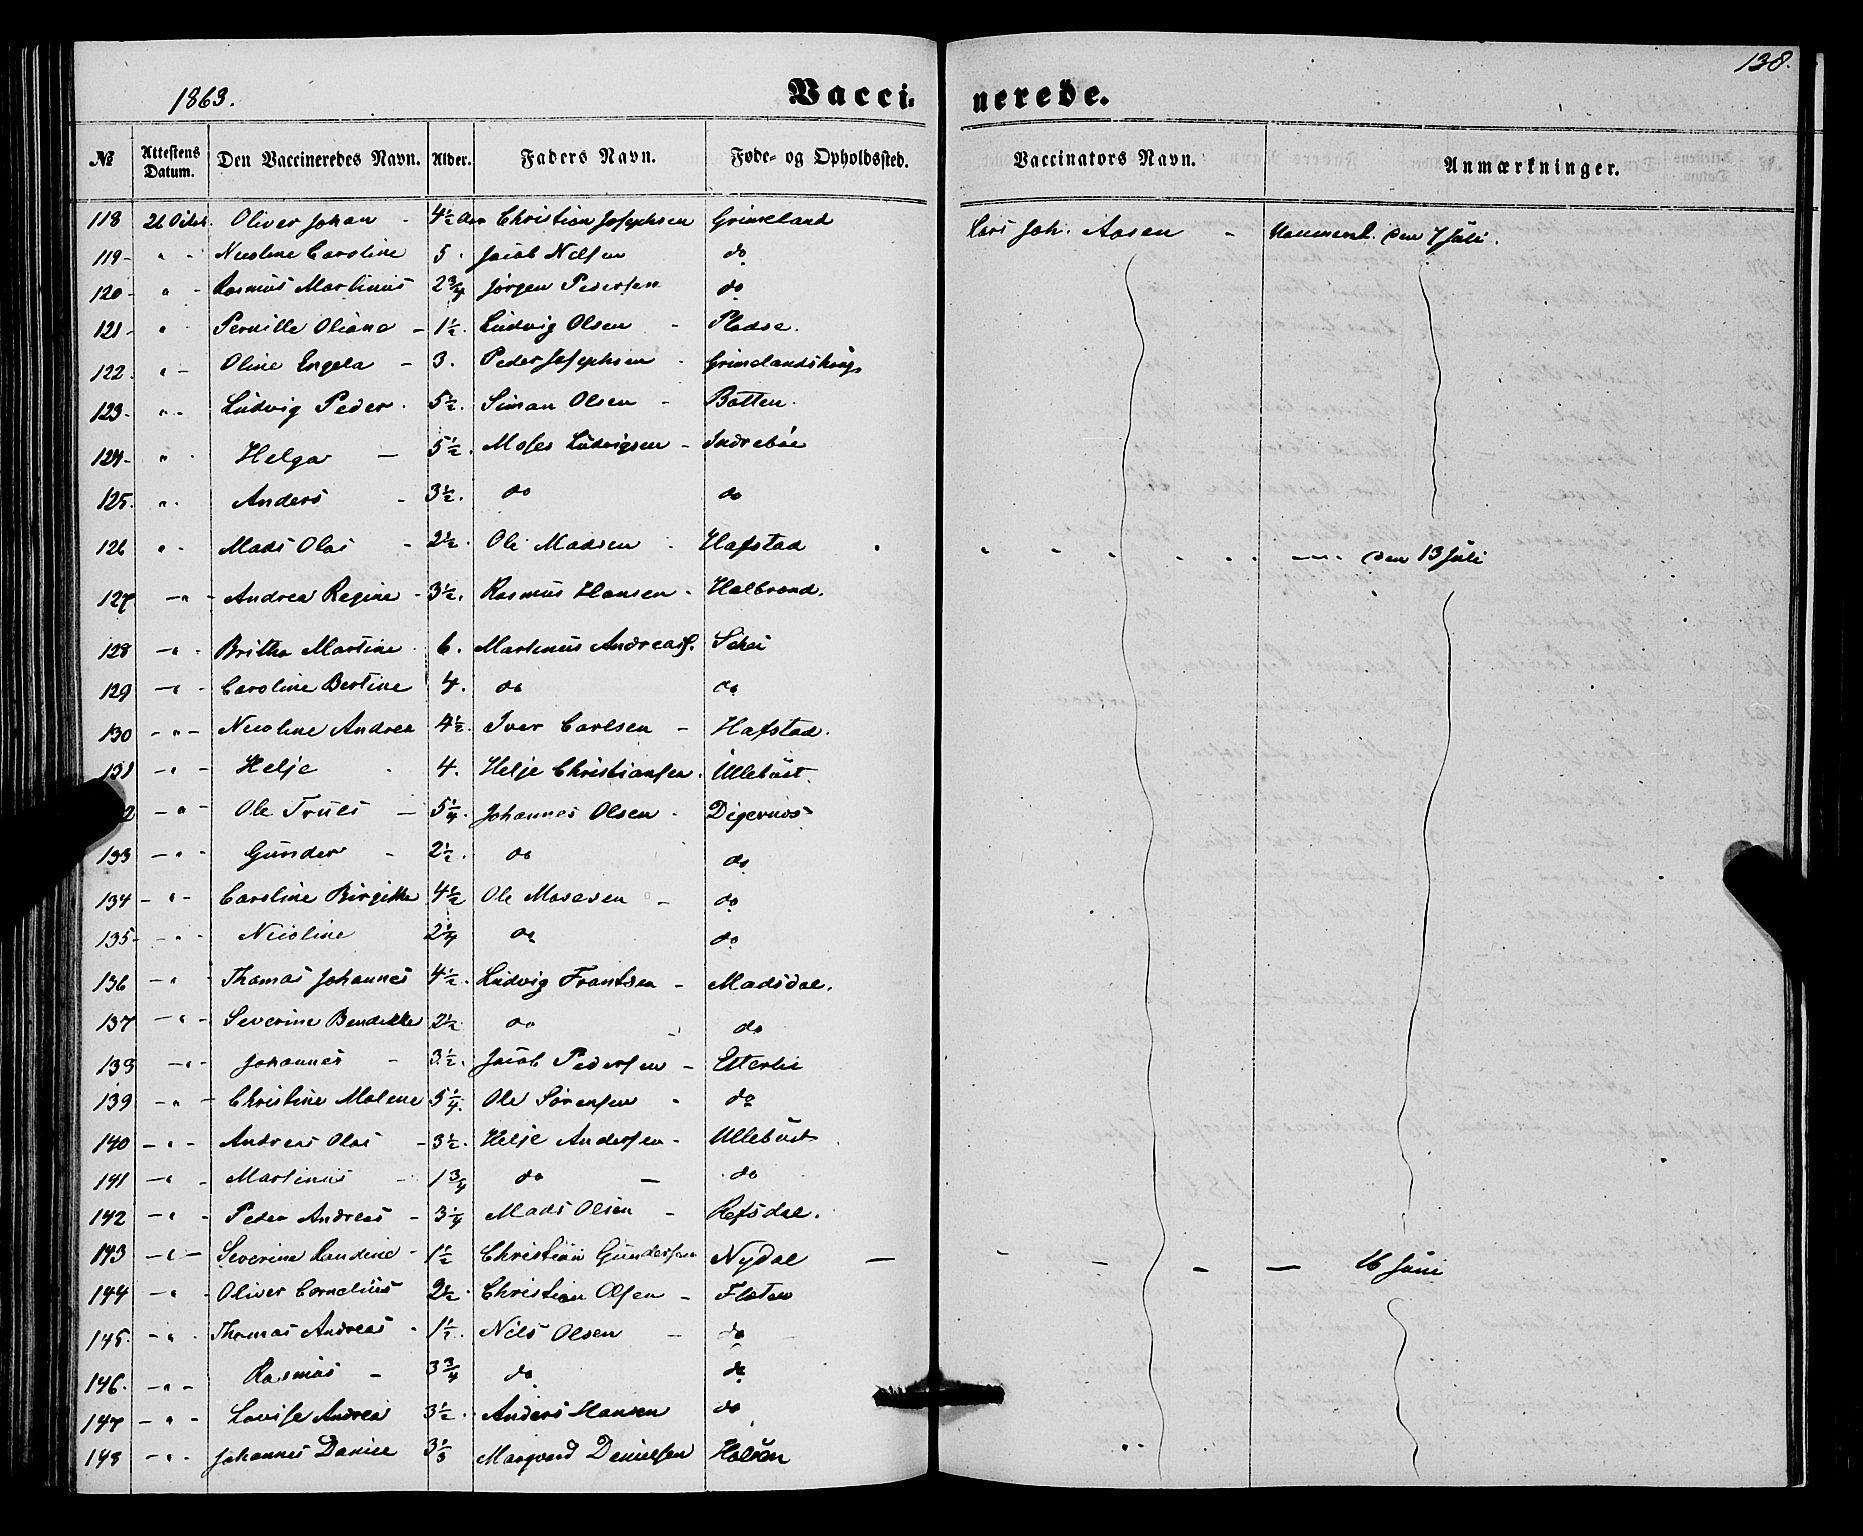 138.
1863. Vacci- nerede.
№ Attestens Datum. Den Vaccineredes Navn. Alder. Faders Navn. Føde- og Opholdssted. Vaccinators Navn. Anmærkninger.
118 26 Octob. Oliver Johan - 4½ Aar Christian Josephsen Grimeland Lars Joh. Aasen - den 7 Juli.
119- " - Nicoline Caroline 5 . Jacob Nilsen do
120- " - Rasmus Martinus 2¾ Jørgen Pedersen do
121- " Pernille Oliane - 1½. Ludvig Olsen - Pladse.
122. " - Oline Engela - 3. Peder Josephsen - Grimelandshoug
123- " - Ludvig Peder . 5½. Simon Olsen - Botten.
124- " . Helga - 5½. Moses Ludvigsen - Indrebøe
125. " . Anders - 3½. do do
126 " - Mads Olai - 2½. Ole Madsen - Hafstad - - - - - - - - den 13 Juli
127 - " - Andrea Regine - 3½. Rasmus Hansen - Halbrend.
128 - " - Brithe Martine . 6. Martinus Andreass. Schei
129 - " - Caroline Bertine 4. do do
130 - " - Nicoline Andrea 4½. Iver Carlsen - Hafstad.
131 - " - Helje . 4. Helje Christiansen . Ullebust.
2 - " - Ole Trues - 5¼. Johannes Olsen - Digernæs
133 - " - Gunder - 2½. do do
134 - " - Caroline Birgitte 4½ Ole Mosesen - do
135- - " - Nicoline 2¼ do do
136 - " - Thomas Johannes 4½. Ludvig Frantsen - Madsdal.
137 - " - Severine Bendikte 2½ do do
138 - " - Johannes - 3½. Jacob Pedersen - Etterlie
139 - " - Christine Malene 5¼. Ole Sørensen - do
140 - " - Andreas Olai - 3½. Helje Andersen - Ullebust
141 - " - Martinus - 1¾ do - do
142 - " - Peder Andreas - 3¼ Mads Olsen - Refsdal.
143 - " - Severine - 1½ Christian Gundersen Nydal - - - - - 16 Juni
144 - " - Oliver Cornelius 2½. Christian Olsen - Flaten
145. - " - Thomas Andreas - 1½. Nils Olsen - do
146. - " - Rasmus - 3¾ do do
147 - " - Lovise Andrea 3½. Anders Hansen do
148 - " - Johannes Daniel 3⅓ Marqvard Danielsen Holsen